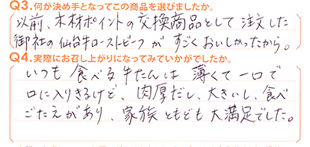 Q3.何が決め手となってこの商品を選びましたか。
以前、木材ポイントの交換商品として注文した
御社の仙台牛ローストビーフが すごくおいしかったから。
Q4.実際にお召し上がりになってみていかがでしたか。
いつも食べる牛たんは 薄くて一口で
口に入りきるけど、肉厚だし、大きいし、食べ
ごたえがあり、家族ともども大満足でした。